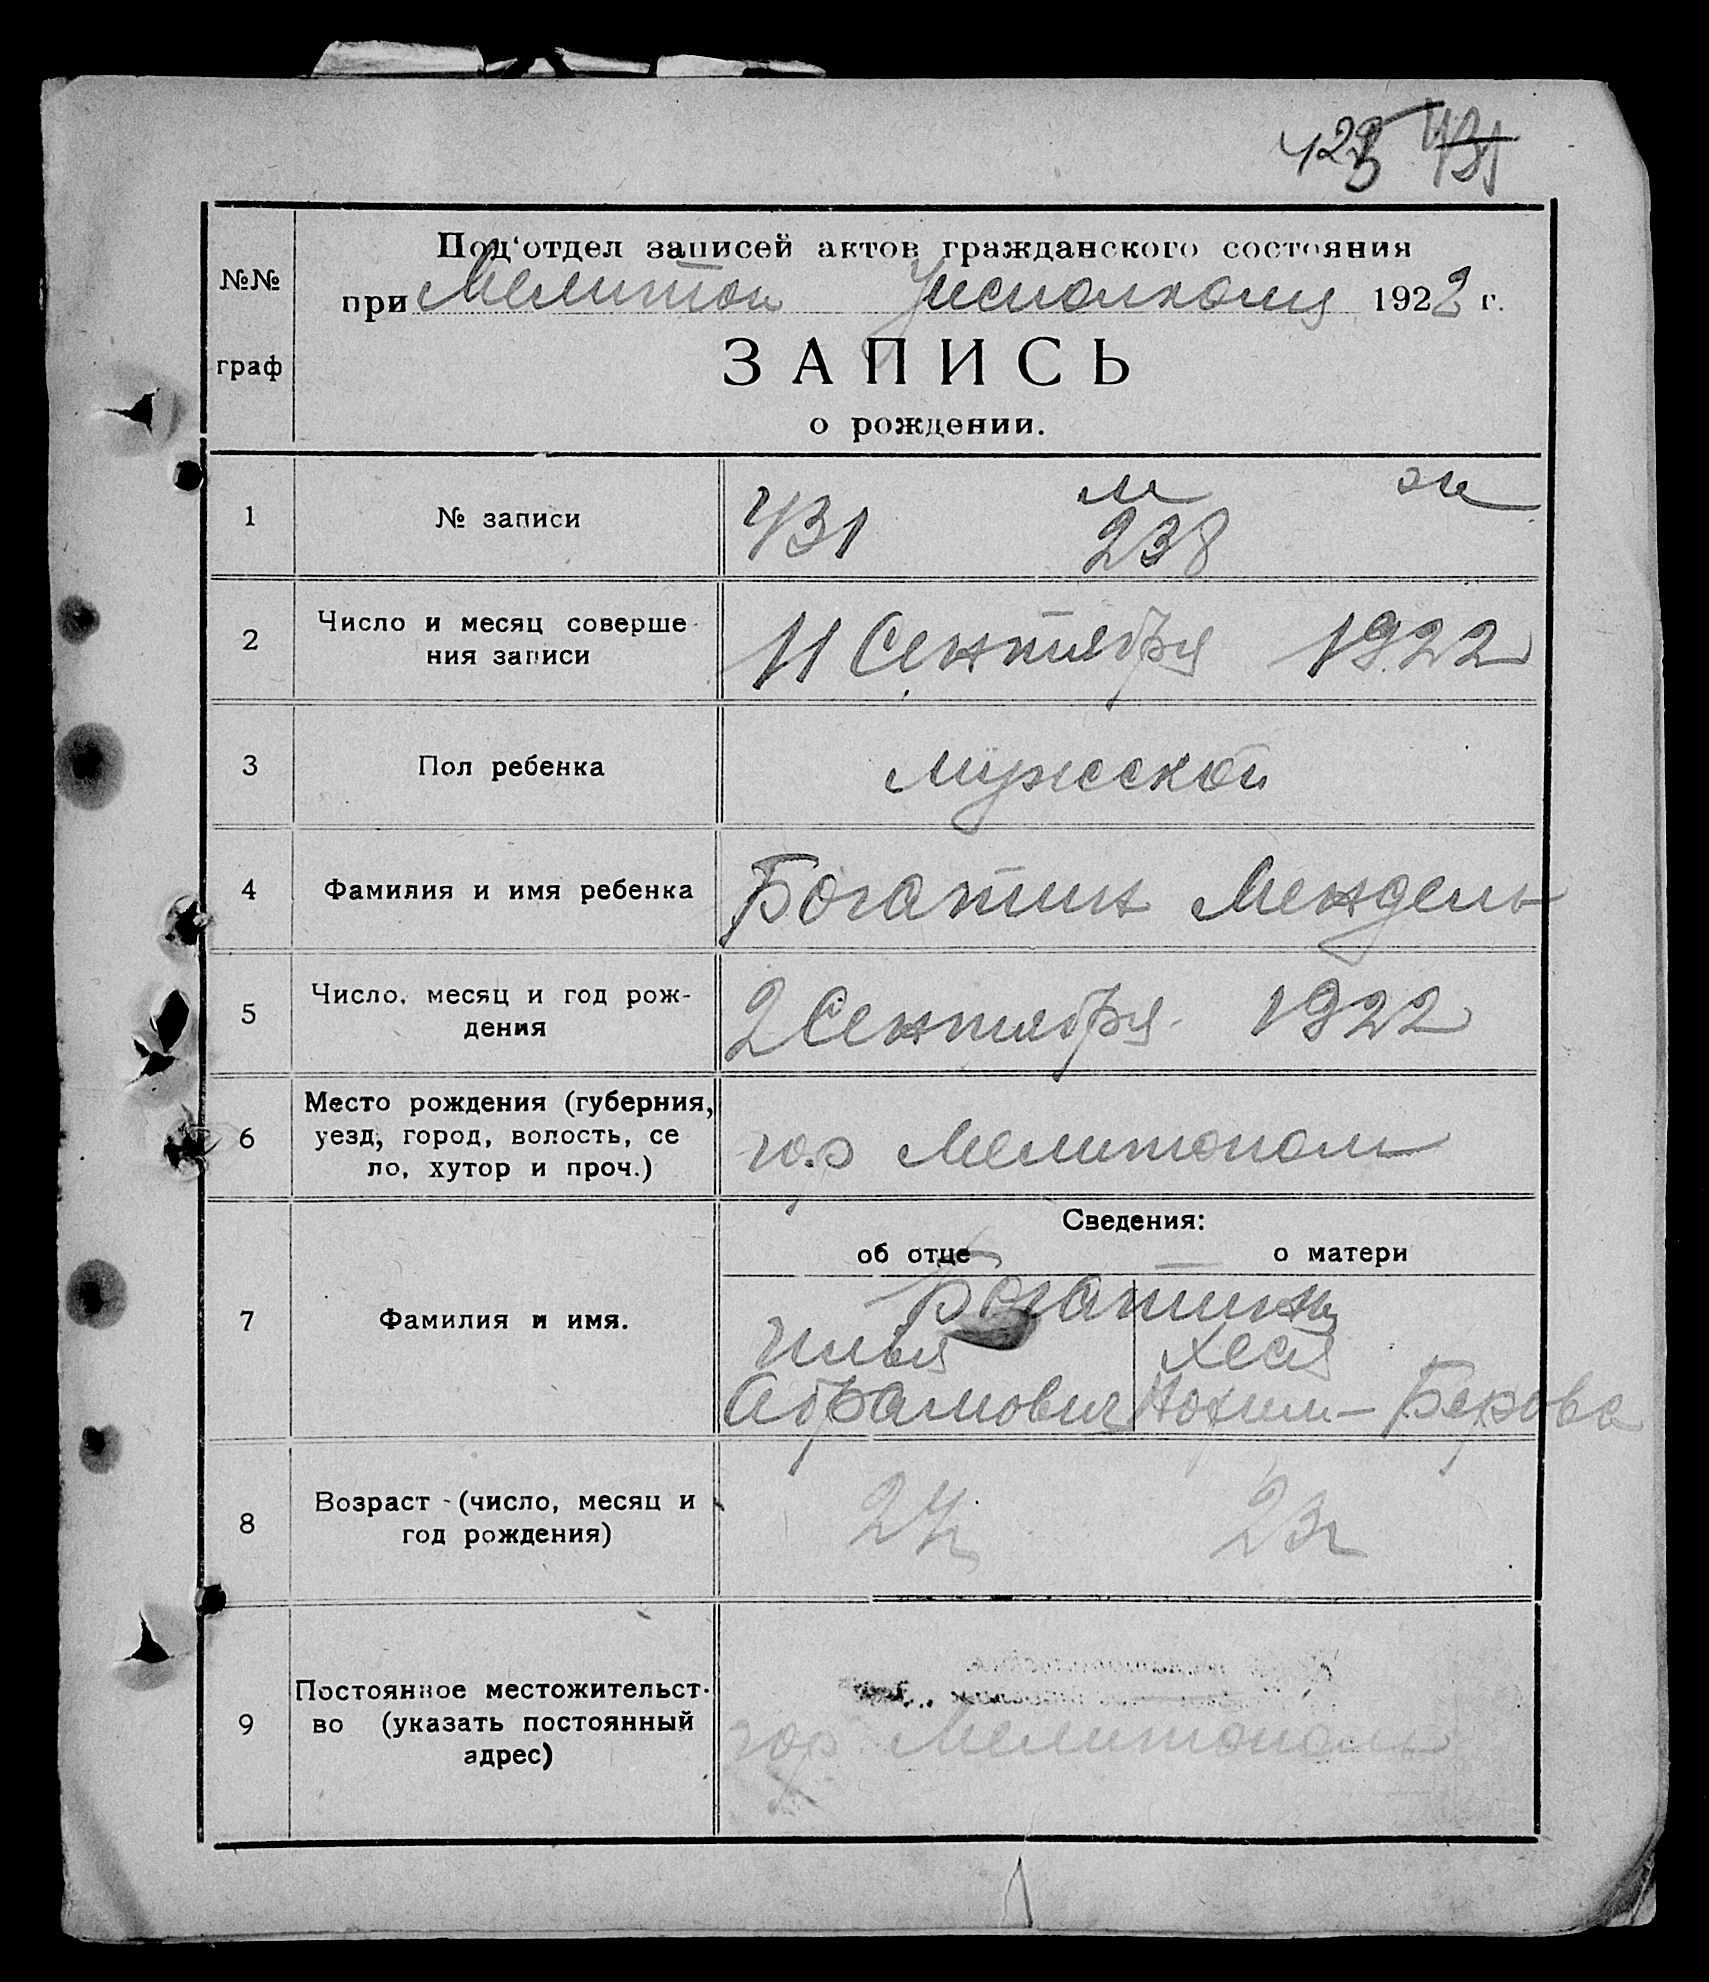 431
Под‘отдел записей актов гражданского состояния
№№
при Мелитоп Уисполкома 1922 г.
граф
ЗАПИСЬ
о рождении.
1 № записи 431 м 238 ж
2 Число и месяц соверше-
ния записи
11 Сентября 1922
3 Пол ребенка мужской
4 Фамилия и имя ребенка Богатин Мендель
5 Число, месяц и год рож-
дения
2 Сентября 1922
6 Место рождения (губерния,
уезд, город, волость, се
ло, хутор и проч.)
гор Мелитополь
Сведения:
об отце о матери
7 Фамилия и имя.
Богатины
Илья Хася
Абрамович Нохим-Берова
8 Возраст (число, месяц и
год рождения)
24 23
9 Постоянное местожительст-
во (указать постоянный
адрес)
гор Мелитополь